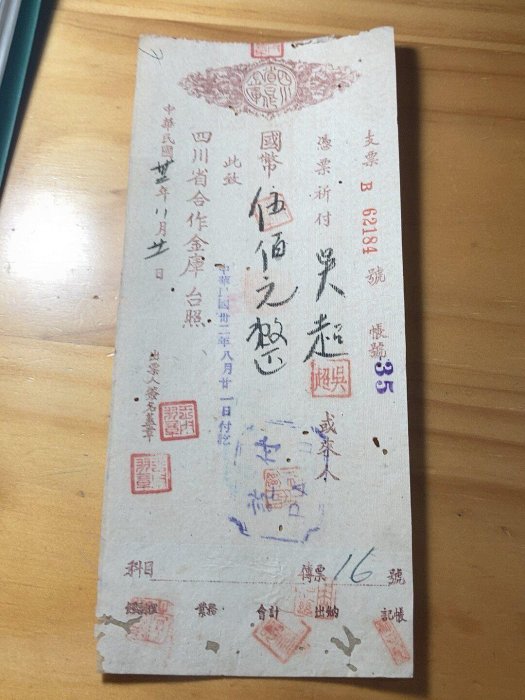 支票 B 62184 號 帳號 35
憑票祈付 吳超 或來人
國幣 伍佰元整
此致
四川省合作金庫 台照
中華民國卅二年八月廿一日付訖
出票人簽名蓋章
中華民國 年八月廿 日
吳超
付
科目 傳票 16 號
會計 出納 記帳